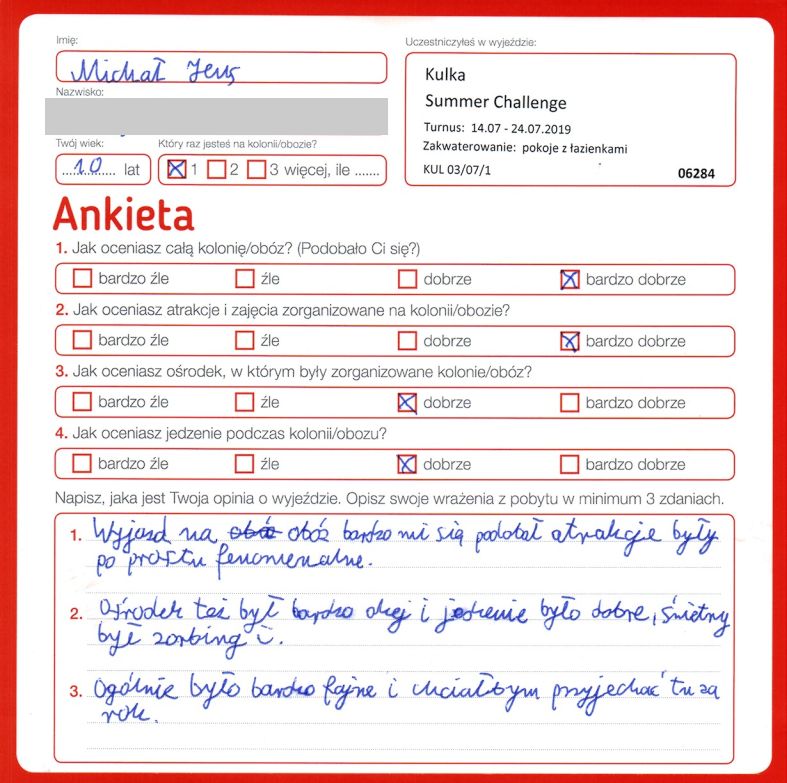 Imię:
Michał Jerz
Nazwisko:
Twój wiek: Który raz jesteś na kolonii/obozie?
10 lat 1 2 3 więcej, ile .......
Uczestniczyłeś w wyjeździe:
Kulka
Summer Challenge
Turnus: 14.07 - 24.07.2019
Zakwaterowanie: pokoje z łazienkami
KUL 03/07/1 06284
Ankieta
1. Jak oceniasz całą kolonię/obóz? (Podobało Ci się?)
bardzo źle źle dobrze bardzo dobrze
2. Jak oceniasz atrakcje i zajęcia zorganizowane na kolonii/obozie?
bardzo źle źle dobrze bardzo dobrze
3. Jak oceniasz ośrodek, w którym były zorganizowane kolonie/obóz?
bardzo źle źle dobrze bardzo dobrze
4. Jak oceniasz jedzenie podczas kolonii/obozu?
bardzo źle źle dobrze bardzo dobrze
Napisz, jaka jest Twoja opinia o wyjeździe. Opisz swoje wrażenia z pobytu w minimum 3 zdaniach.
1. Wyjazd na obóz bardzo mi się podobał atrakcje były
po prostu fenomenalne.
2. Ośrodek też był bardzo okej i jedzenie było dobre, świetny
był zorbing.
3. Ogólnie było bardzo fajne i chciałbym przyjechać tu za
rok.